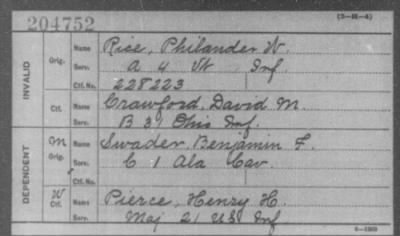 204752
(3-M-4)
INVALID
Orig.
Name Rice, Philander W.
Serv. A 4 Vt Inf.
Ctf. No. 228223
Ctf.
Name Crawford, David M.
Serv. B 31 Ohio Inf.
DEPENDENT
M
Orig.
Name Swader, Benjamin F.
Serv. C 1 Ala Cav.
Ctf. No.
W
Ctf.
Name Pierce, Henry H.
Serv. Maj 21 US Inf